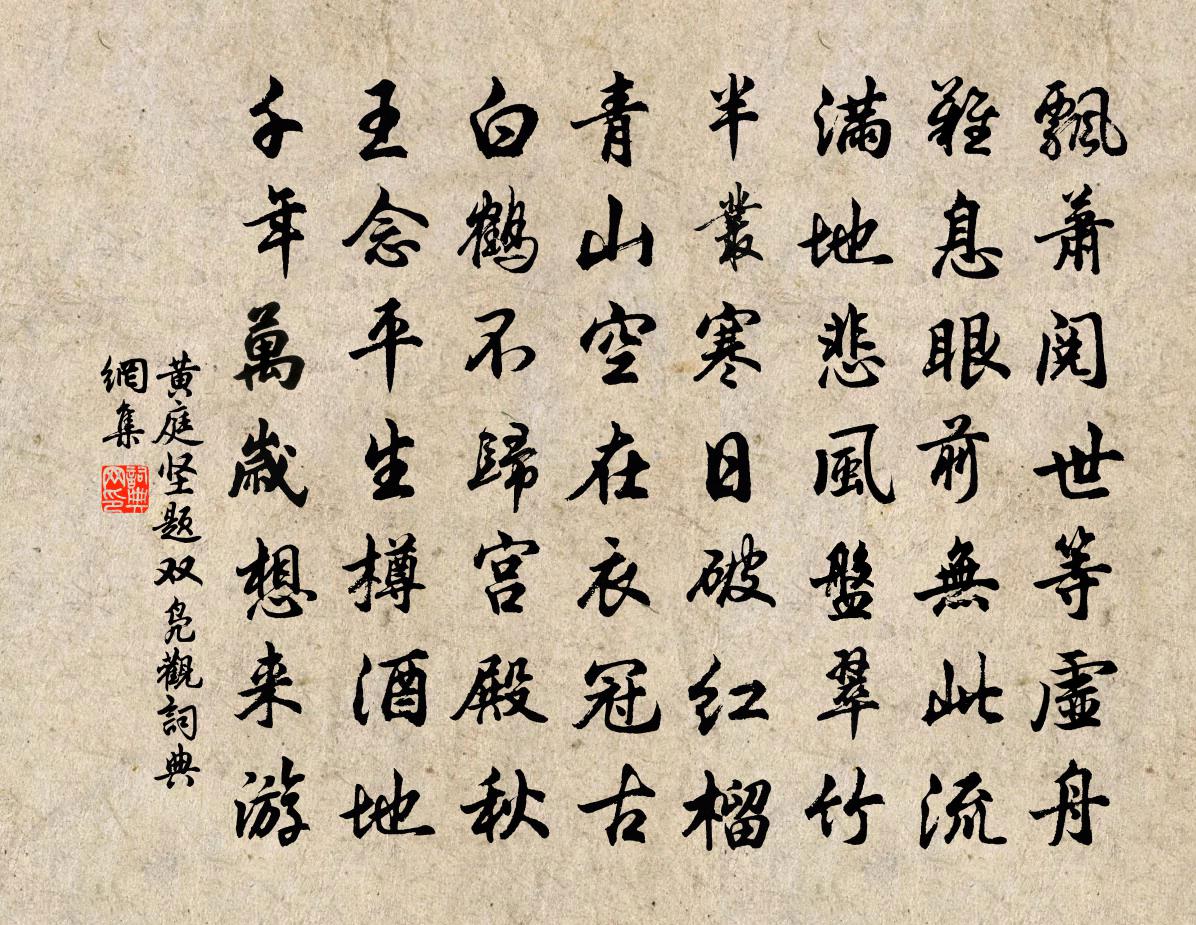 飄蕭閱世等虛舟
難息眼前無此流
滿地悲風盤翠竹
半叢寒日破紅榴
青山空在衣冠古
白鶴不歸宮殿秋
王念平生樽酒地
千年萬歲想来游
黄庭坚題双凫觀詞典
網集
詞典网印